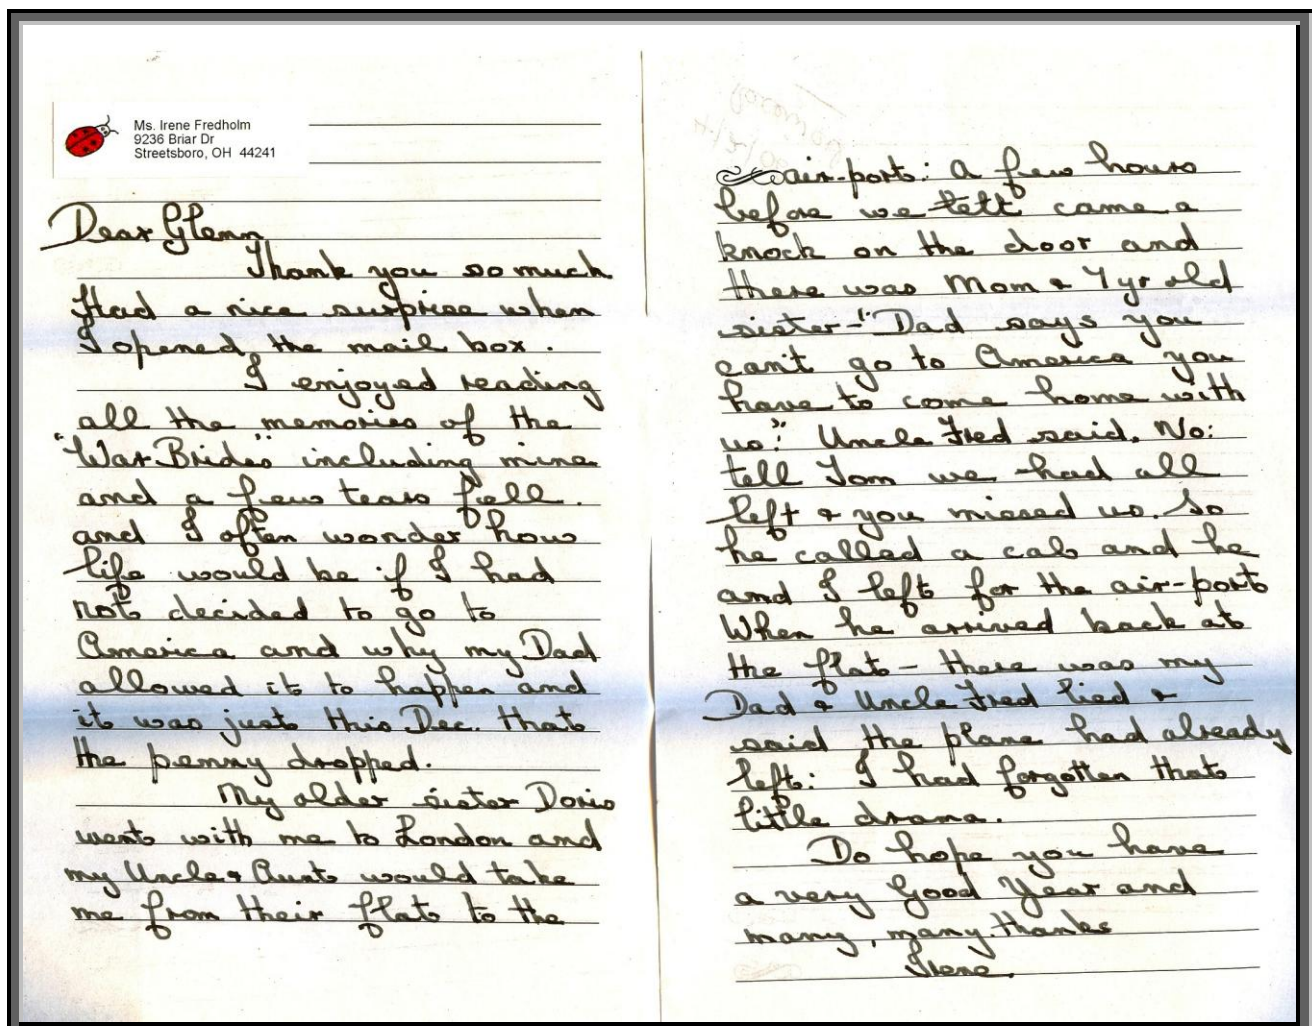 Ms. Irene Fredholm
9236 Briar Dr
Streetsboro, OH 44241
Dear Glenn
Thank you so much
Had a nice surprise when
I opened the mail box.
I enjoyed reading
all the memories of the
"War Brides" including mine
and a few tears fell.
and I often wonder how
life would be if I had
not decided to go to
America and why my Dad
allowed it to happen and
it was just this Dec. that
the penny dropped.
My older sister Doris
went with me to London and
my Uncle & Aunt would take
me from their flat to the
air-port: A few hours
before we left came a
knock on the door and
there was Mom & 7yr old
sister-"Dad says you
can't go to America you
have to come home with
us." Uncle Fred said. No:
tell Tom we had all
left & you missed us. So
he called a cab and he
and I left for the air-port
When he arrived back at
the flat - there was my
Dad & Uncle Fred lied &
said the plane had already
left: I had forgotten that
little drama.
Do hope you have
a very Good Year and
many, many thanks
Irene.